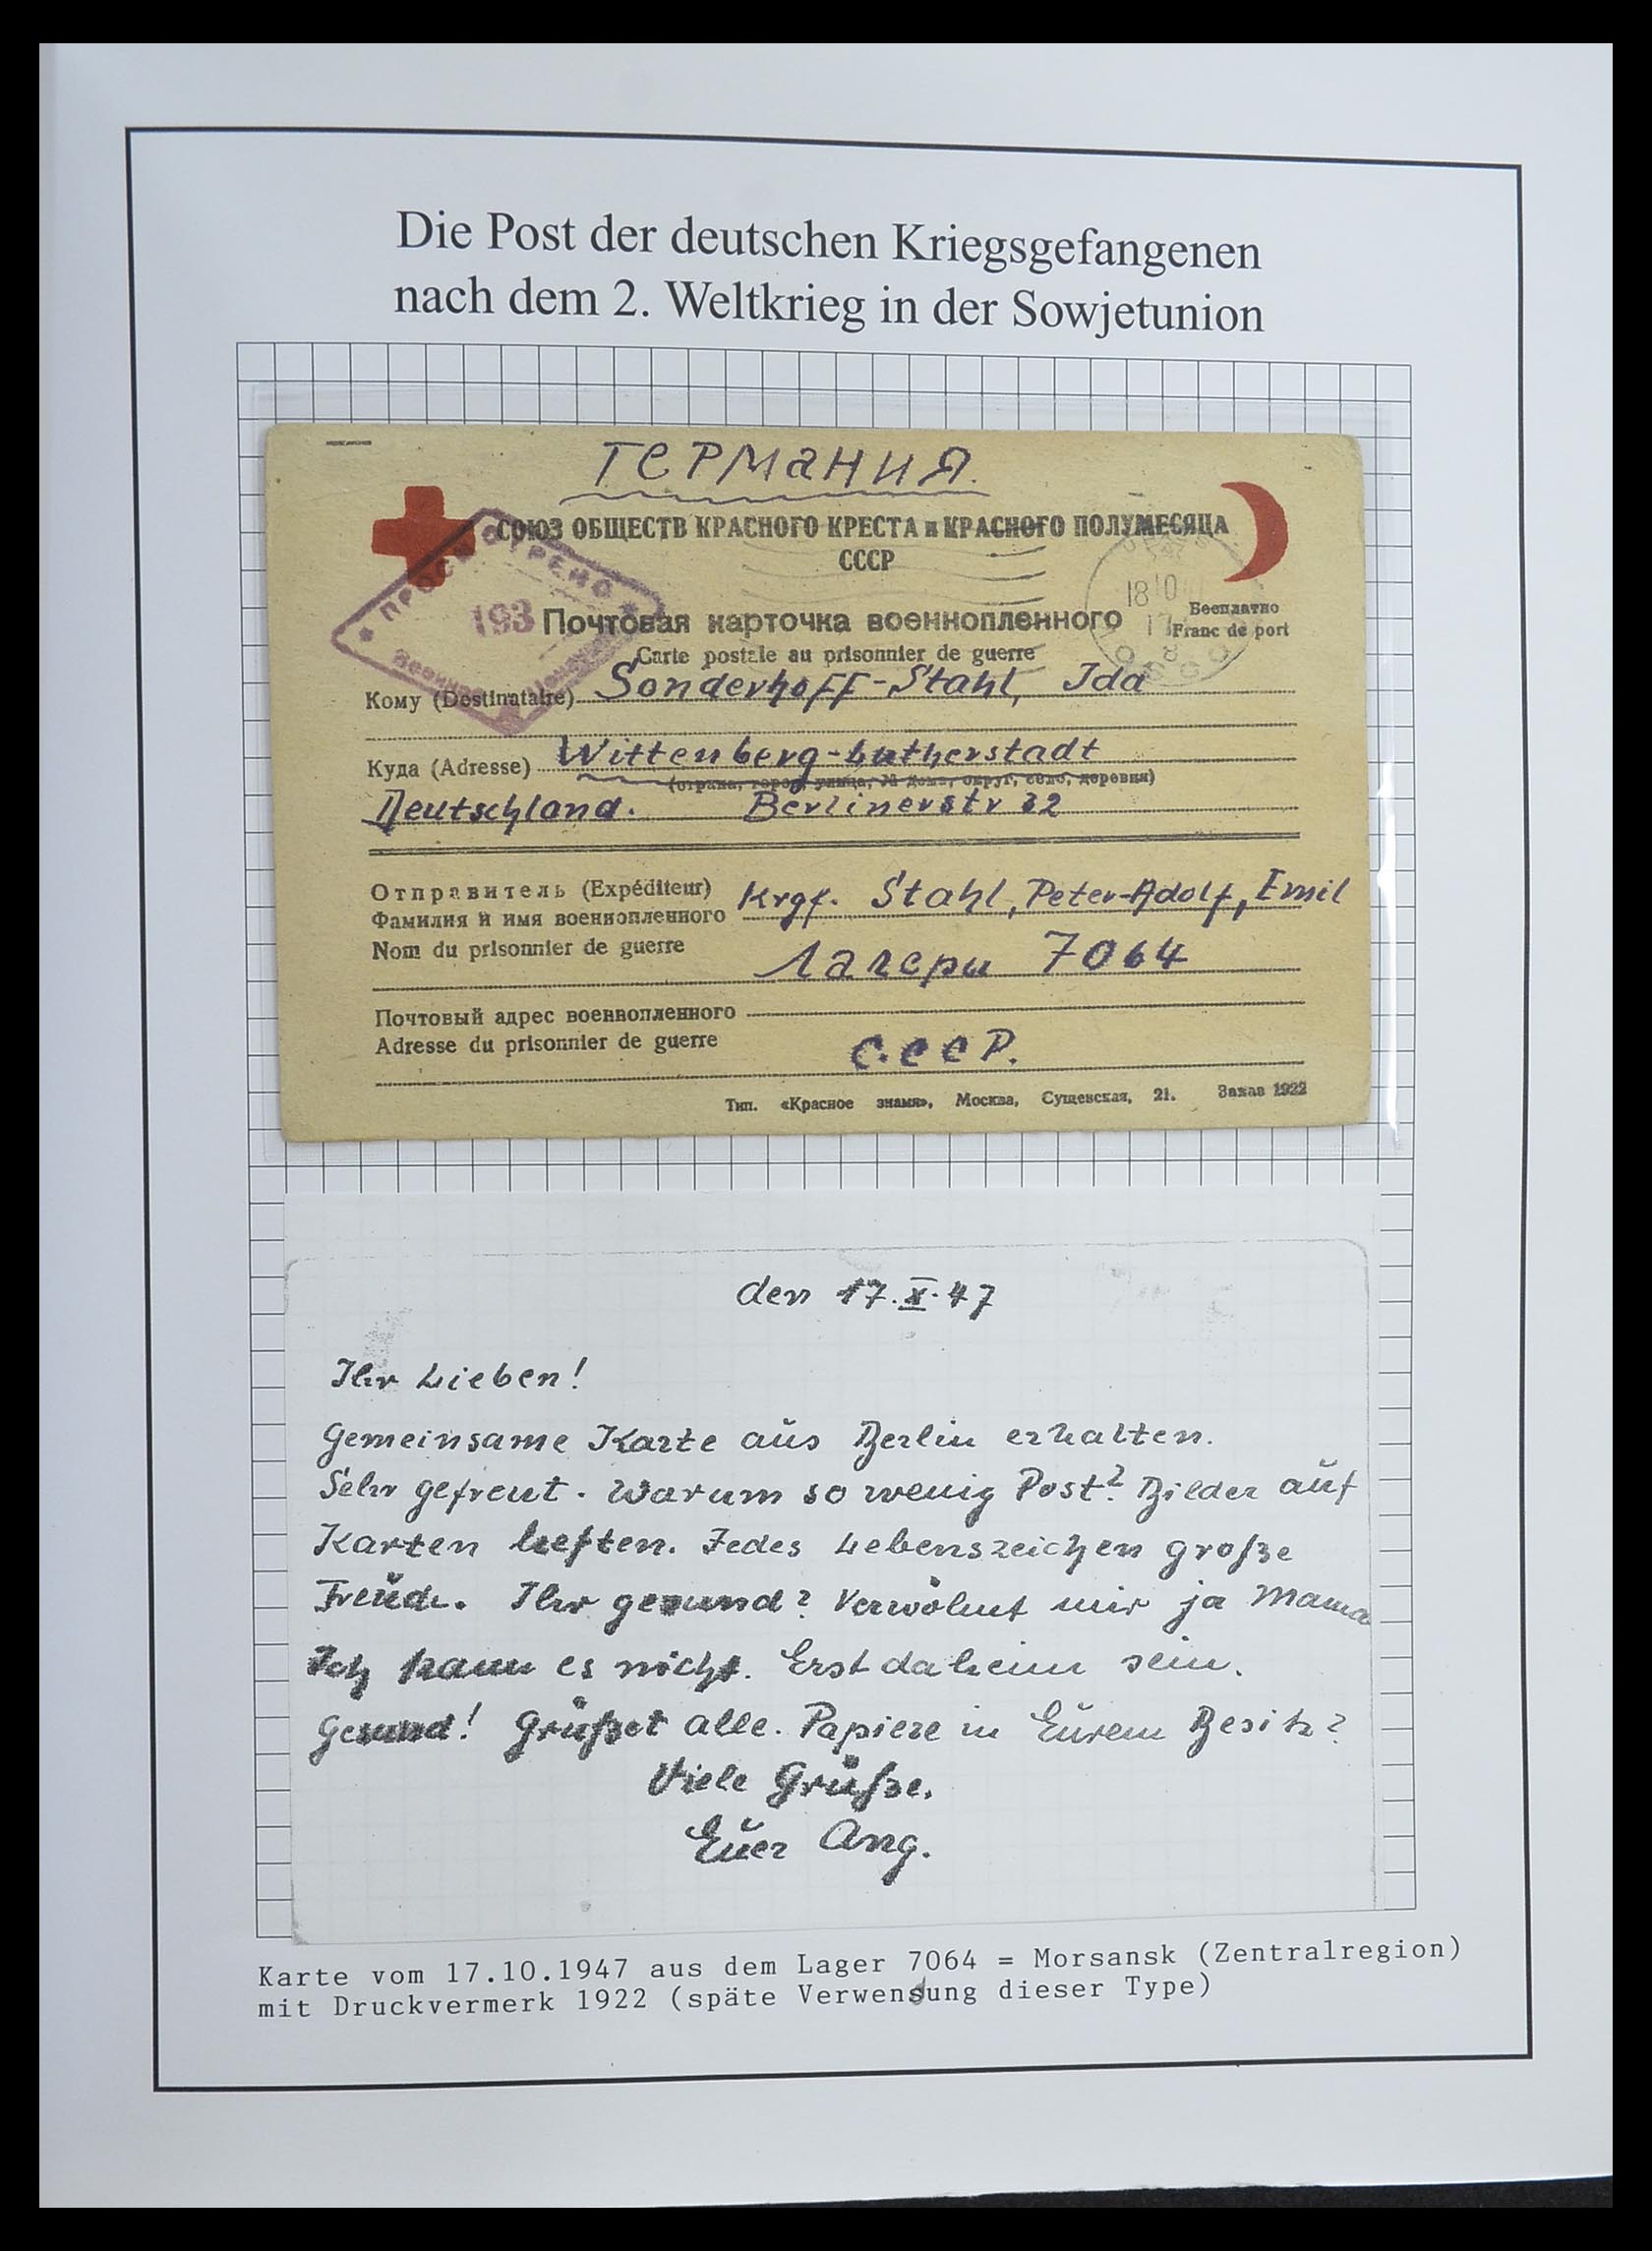 Die Post der deutschen Kriegsgefangenen
nach dem 2. Weltkrieg in der Sowjetunion
ГЕРМАНИЯ.
СОЮЗ ОБЩЕСТВ КРАСНОГО КРЕСТА и КРАСНОГО ПОЛУМЕСЯЦА
СССР
ПРОСМОТРЕНО
193
Почтовая карточка военнопленного
Бесплатно
Franc de port
18 10
Carte postale au prisonnier de guerre
Кому (Destinataire) Sonderhoff-Stahl, Ida
Куда (Adresse) Wittenberg-Lutherstadt
(страна, город, улица, № дома, округ, село, деревня)
Deutschland. Berlinerstr 32
Отправитель (Expéditeur)
Фамилия и имя военнопленного Krgf. Stahl, Peter-Adolf, Emil
Nom du prisonnier de guerre Лагери 7064
Почтовый адрес военнопленного
Adresse du prisonnier de guerre C.C.C.P.
Тип. «Красное знамя», Москва, Сущевская, 21. Заказ 1922
den 17.X.47
Ihr Lieben!
Gemeinsame Karte aus Berlin erhalten.
Sehr gefreut. Warum so wenig Post? Bilder auf
Karten heften. Jedes Lebenszeichen große
Freude. Ihr gesund? Verwöhnt mir ja Mama
Ich kann es nicht. Erst daheim sein.
Gesund! Grüßet alle. Papiere in Eurem Besitz?
Viele Grüße.
Euer Ang.
Karte vom 17.10.1947 aus dem Lager 7064 = Morsansk (Zentralregion)
mit Druckvermerk 1922 (späte Verwendung dieser Type)